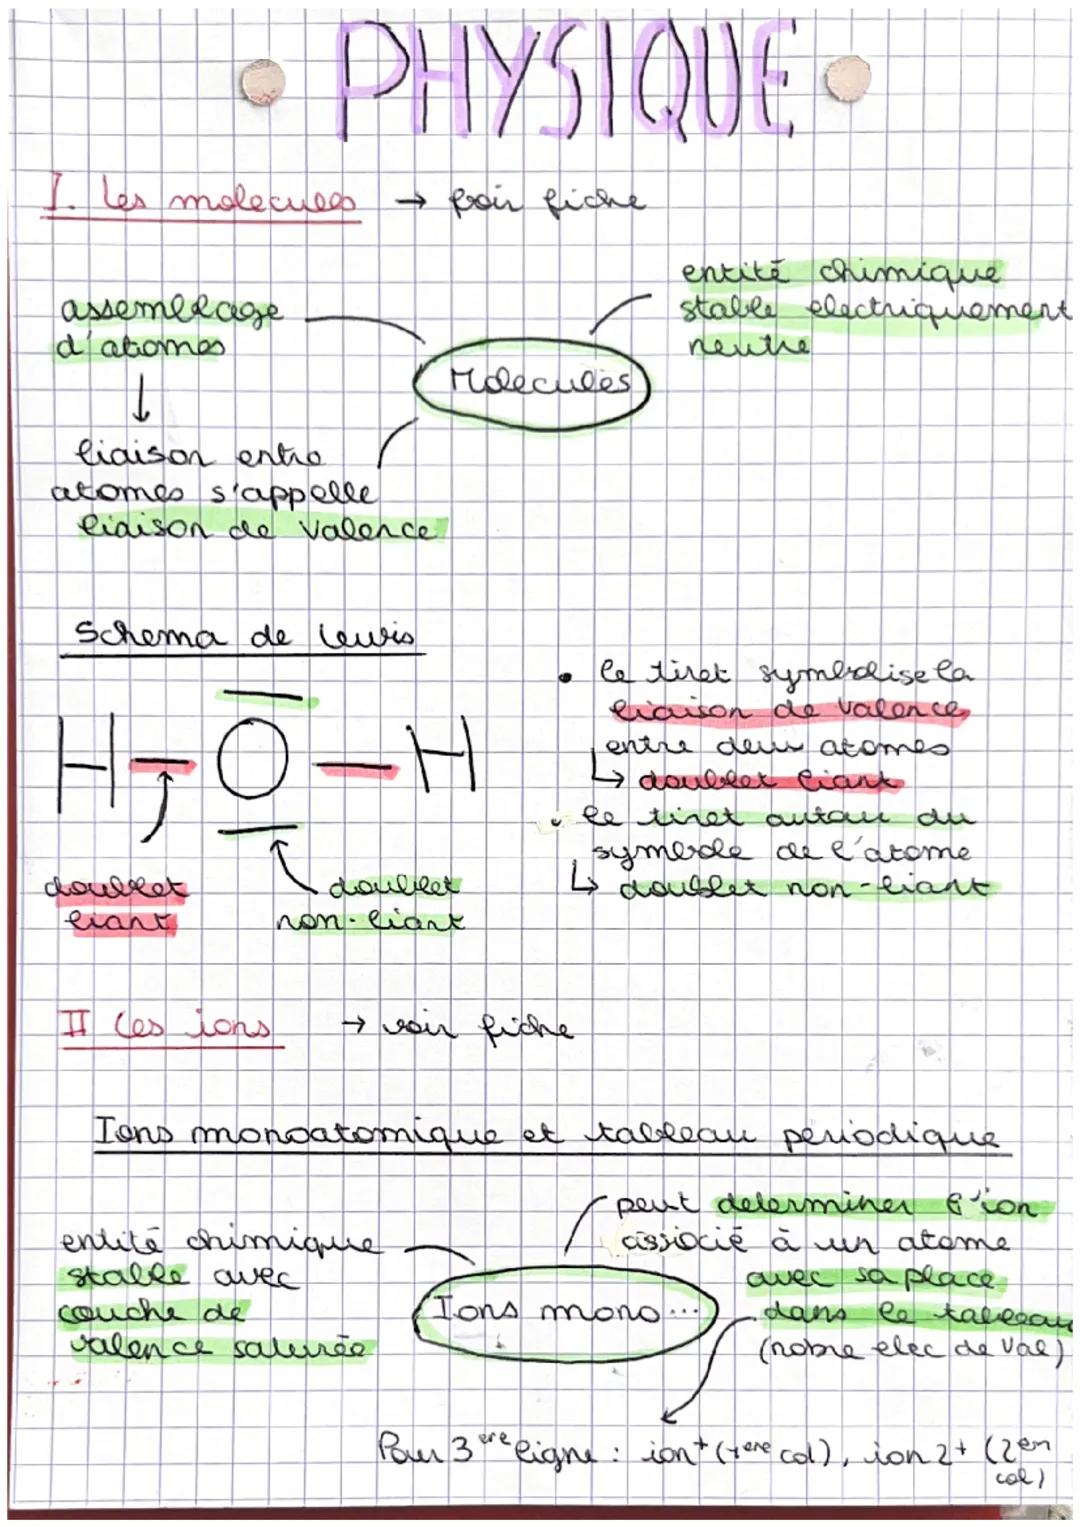 PHYSIQUE
I. les molecules → voir fiche
entité chimique
stable electriquement
neutre
assemblage
d'atomes
Molecules
liaison entre
atomes s'appelle
liaison de valence
Schema de lewis
H - O - H
doublet
liant
doublet
non-liant
• le tiret symbolise la
liaison de valence
entre deux atomes
↳ doublet liant
• le tiret autour du
symbole de l'atome
↳ doublet non-liant
II les ions → voir fiche
Ions monoatomique et tableau periodique
entité chimique
stable avec
couche de
valence saturée
Ions mono...
peut determiner l'ion
associé à un atome
avec sa place
dans le tableau
(nobre elec de val)
Pour 3ere ligne : ion+ (1ere col), ion 2+ (2em
col)